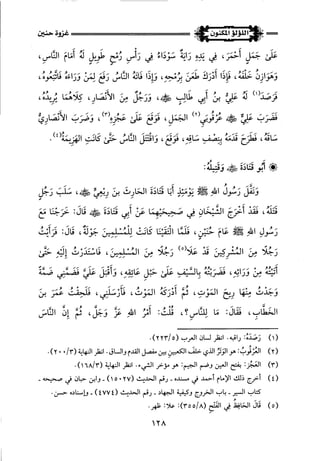 اللؤلؤ المكنون
غزوة حنين
عَلَى جَمَلٍ أَحْمَرَ، فِي يَدِهِ رَايَةٌ سَوْدَاءُ فِي رَأْسِ رُمْحٍ طَوِيلٍ لَهُ أَمَامَ النَّاسِ،
وَهَوَازِنُ خَلْفَهُ، فَإِذَا أَدْرَكَ طَعَنَ بِرُمْحِهِ، وَإِذَا فَاتَهُ النَّاسُ رَفَعَ لِمَنْ وَرَاءَهُ فَاتَّبَعُوهُ،
فَرَصَدَ(١) لَهُ عَلِيُّ بنُ أَبِي طَالِبٍ ﷺ، وَرَجُلٌ مِنَ الْأَنْصَارِ، كِلَاهُمَا يُرِيدُهُ،
فَضَرَبَ عَلِيٌّ ﷺ عُرْقُوبَيِ(٢) الْجَمَلِ، فَوَقَعَ عَلَى عَجُزِهِ(٣)، وَضَرَبَ الْأَنْصَارِيُّ
سَاقَهُ، فَطَرَحَ قَدَمَهُ بِنِصْفِ سَاقِهِ، فَوَقَعَ، وَاقْتَتَلَ النَّاسُ حَتَّى كَانَتِ الْهَزِيمَةُ(٤).
أَبُو قَتَادَةَ ﷺ وَقَتِيلُهُ:
وَنَفَّلَ رَسُولُ اللهِ ﷺ يَوْمَئِذٍ أَبَا قَتَادَةَ الْحَارِثَ بنَ رِبْعِيٍّ ﷺ، سَلَبَ رَجُلٍ
قَتَلَهُ، فَقَدْ أَخْرَجَ الشَّيْخَانِ فِي صَحِيحَيْهِمَا عَنْ أَبِي قَتَادَةَ ﷺ قَالَ: خَرَجْنَا مَعَ
رَسُولِ اللهِ ﷺ عَامَ حُنَيْنٍ، فَلَمَّا الْتَقَيْنَا كَانَتْ لِلْمُسْلِمِينَ جَوْلَةٌ، قَالَ: فَرَأَيْتُ
رَجُلًا مِنَ الْمُشْرِكِينَ قَدْ عَلَا(٥) رَجُلًا مِنَ الْمُسْلِمِينَ، فَاسْتَدَرْتُ إِلَيْهِ حَتَّى
أَتَيْتُهُ مِنْ وَرَائِهِ، فَضَرَبْتُهُ بِالسَّيْفِ عَلَى حَبْلِ عَاتِقِهِ، وَأَقْبَلَ عَلَيَّ فَضَمَّنِي ضَمَّةً
وَجَدْتُ مِنْهَا رِيحَ الْمَوْتِ، ثُمَّ أَدْرَكَهُ الْمَوْتُ، فَأَرْسَلَنِي، فَلَحِقْتُ عُمَرَ بنَ
الْخَطَّابِ، فَقَالَ: مَا لِلنَّاسِ؟، قُلْتُ: أَمْرُ اللهِ عَزَّ وَجَلَّ، ثُمَّ إِنَّ النَّاسَ
(١) رَصَدَهُ: راقبه. انظر لسان العرب (٢٢٣/٥).
(٢) العُرْقُوبُ: هو الوَتَرُ الذي خلف الكعبين بين مفصل القدم والساق. انظر النهاية (٢٠٠/٣).
(٣) العَجُزُ: بفتح العين وضم الجيم: هو مؤخر الشيء. انظر النهاية (١٦٨/٣).
(٤) أخرج ذلك الإمام أحمد في مسنده - رقم الحديث (١٥٠٢٧) - وابن حبان في صحيحه -
كتاب السير - باب الخروج وكيفية الجهاد - رقم الحديث (٤٧٧٤) - وإسناده حسن.
(٥) قَالَ الحَافِظُ فِي الفَتْحِ (٣٥٥/٨): علا: ظهر.
١٢٨